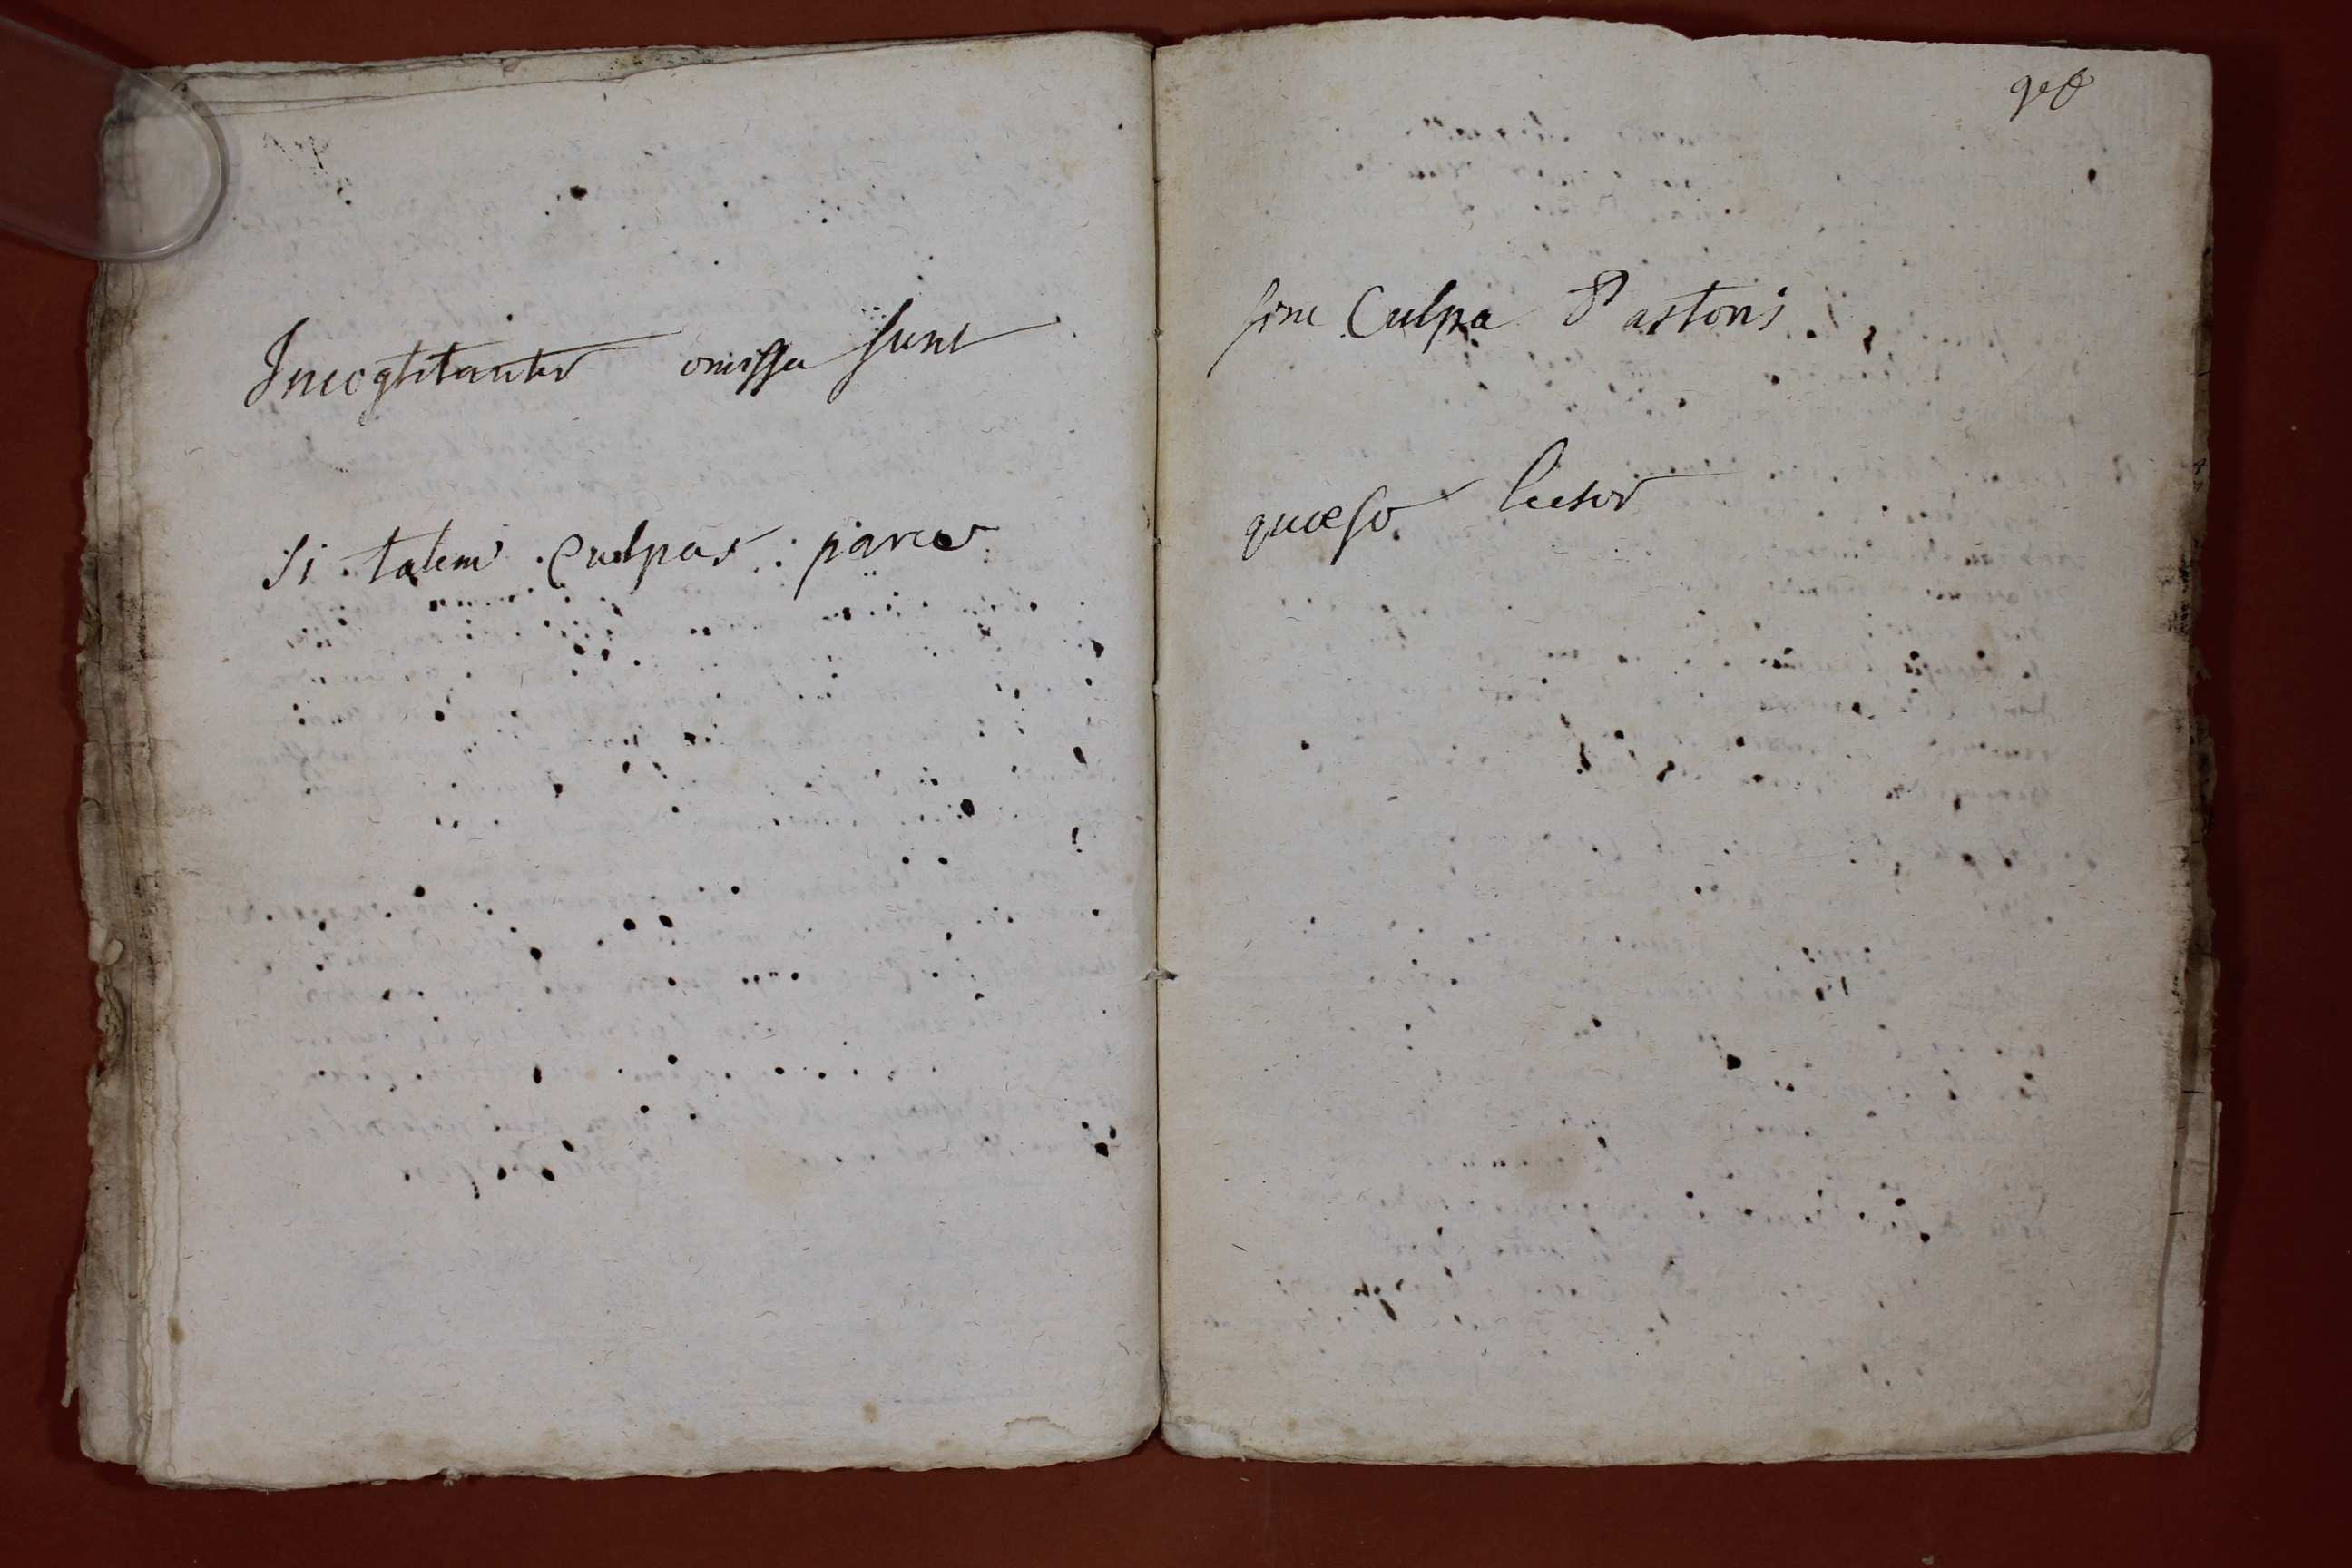 Incogtitanter omissa sunt
Si talem Culpas parce
sine Culpa Pastoris.
quaeso lector